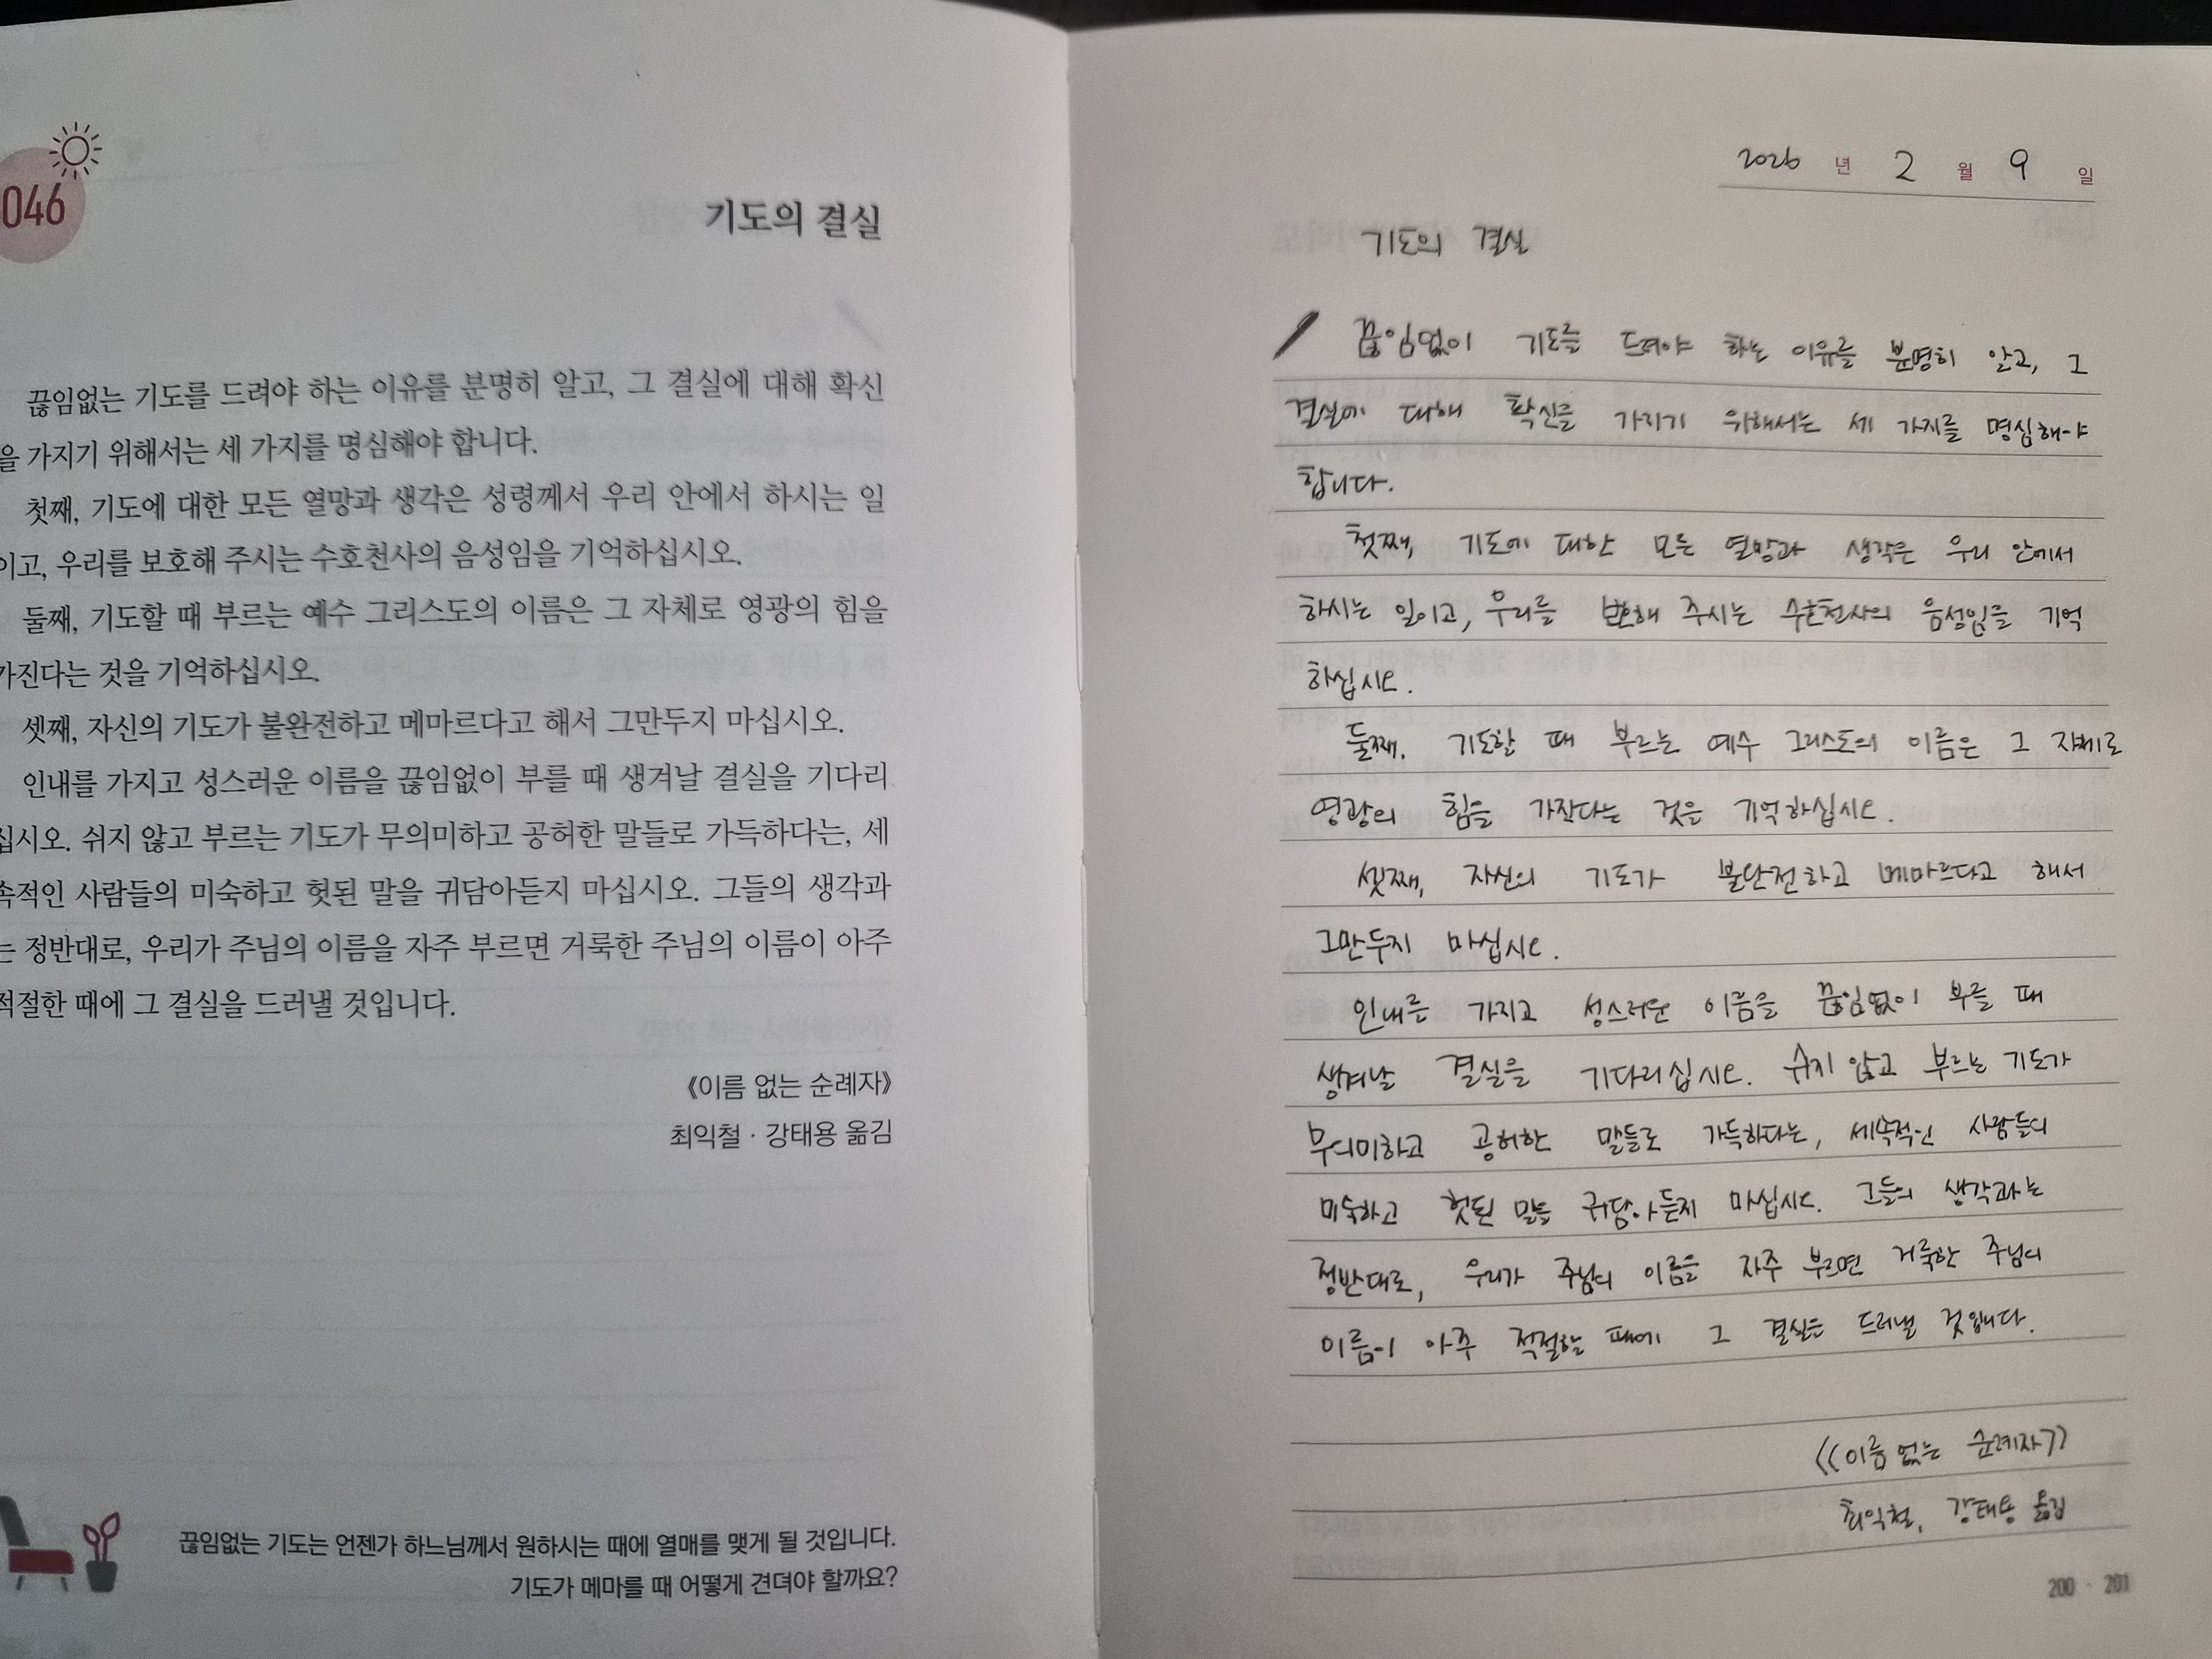 046
기도의 결실
끊임없는 기도를 드려야 하는 이유를 분명히 알고, 그 결실에 대해 확신
을 가지기 위해서는 세 가지를 명심해야 합니다.
첫째, 기도에 대한 모든 열망과 생각은 성령께서 우리 안에서 하시는 일
이고, 우리를 보호해 주시는 수호천사의 음성임을 기억하십시오.
둘째, 기도할 때 부르는 예수 그리스도의 이름은 그 자체로 영광의 힘을
가진다는 것을 기억하십시오.
셋째, 자신의 기도가 불완전하고 메마르다고 해서 그만두지 마십시오.
인내를 가지고 성스러운 이름을 끊임없이 부를 때 생겨날 결실을 기다리
십시오. 쉬지 않고 부르는 기도가 무의미하고 공허한 말들로 가득하다는, 세
속적인 사람들의 미숙하고 헛된 말을 귀담아듣지 마십시오. 그들의 생각과
는 정반대로, 우리가 주님의 이름을 자주 부르면 거룩한 주님의 이름이 아주
적절한 때에 그 결실을 드러낼 것입니다.
《이름 없는 순례자》
최익철 · 강태용 옮김
끊임없는 기도는 언젠가 하느님께서 원하시는 때에 열매를 맺게 될 것입니다.
기도가 메마를 때 어떻게 견뎌야 할까요?
2026 년 2 월 9 일
기도의 결실
끊임없이 기도를 드려야 하는 이유를 분명히 알고, 그
결실에 대해 확신을 가지기 위해서는 세 가지를 명심해야
합니다.
첫째, 기도에 대한 모든 열망과 생각은 우리 안에서
하시는 일이고, 우리를 보호해 주시는 수호천사의 음성임을 기억
하십시오.
둘째, 기도할 때 부르는 예수 그리스도의 이름은 그 자체로
영광의 힘을 가진다는 것을 기억하십시오.
셋째, 자신의 기도가 불완전하고 메마르다고 해서
그만두지 마십시오.
인내를 가지고 성스러운 이름을 끊임없이 부를 때
생겨날 결실을 기다리십시오. 쉬지 않고 부르는 기도가
무의미하고 공허한 말들로 가득하다는, 세속적인 사람들의
미숙하고 헛된 말을 귀담아듣지 마십시오. 그들의 생각과는
정반대로, 우리가 주님의 이름을 자주 부르면 거룩한 주님의
이름이 아주 적절한 때에 그 결실을 드러낼 것입니다.
《이름 없는 순례자》
최익철, 강태용 옮김
200 · 201